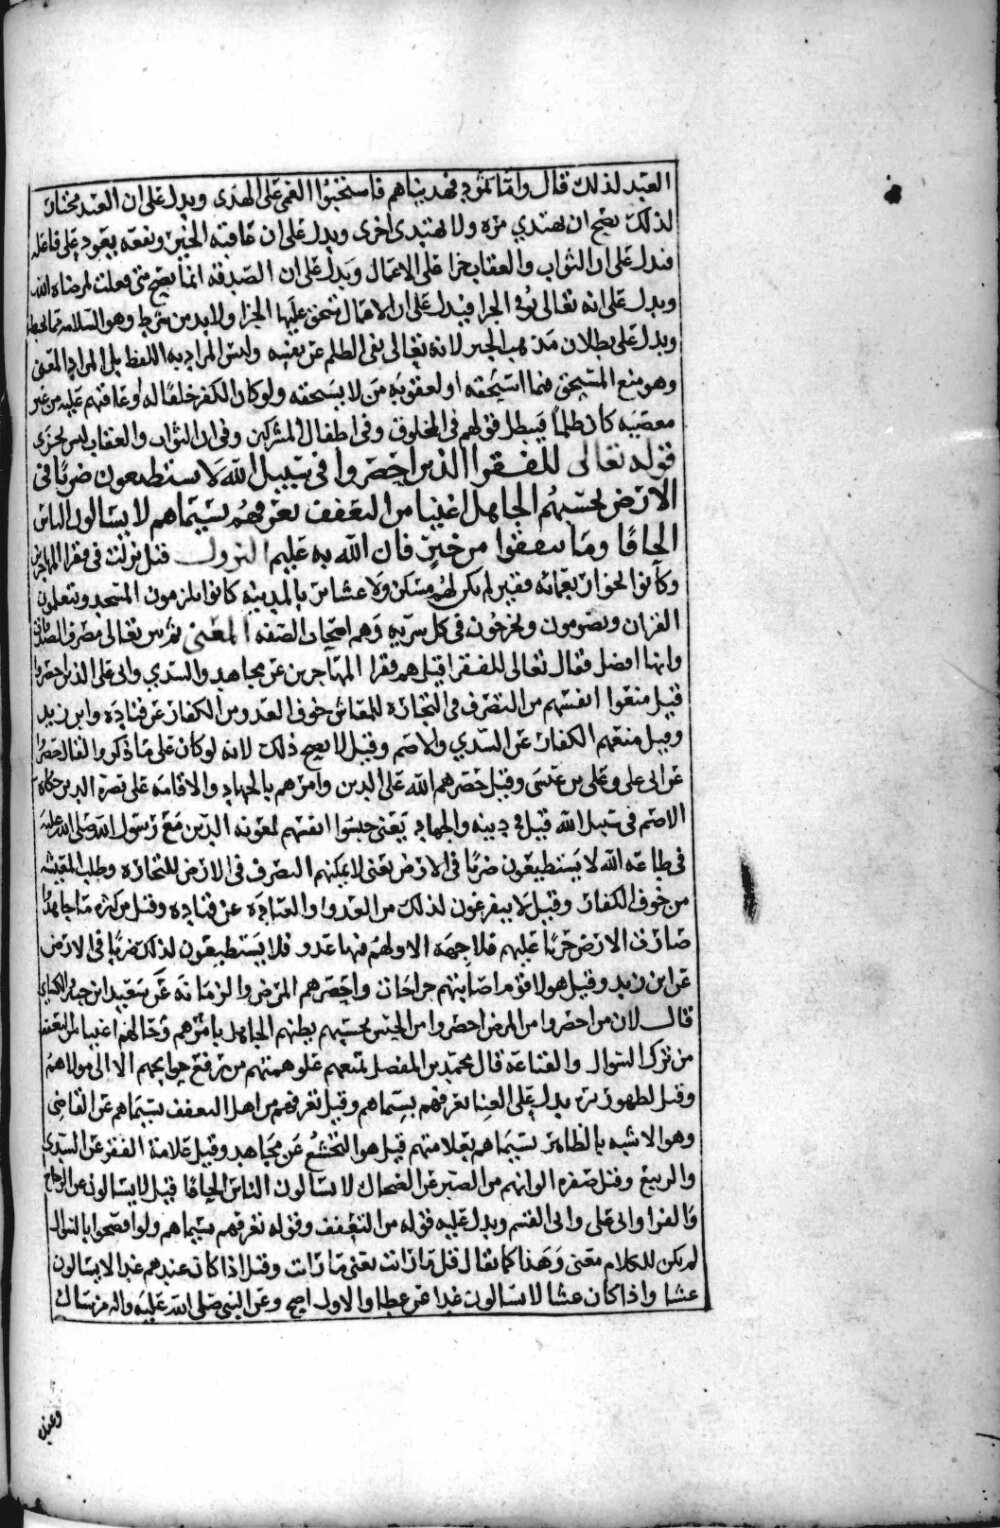 العبد لذلك قال واما ثمود فهديناهم فاستحبوا العمى على الهدى ويدل على ان العبد مختار
لذلك يصح ان يهتدي مرة ولا يهتدي اخرى ويدل على ان عاقبة الخير ونفعه يعود على فاعله
فتدل على ان الثواب والعقاب جزا على الاعمال ويدل على ان الصدقة انما يصح متى فعلت لمرضاة الله
ويدل على انه تعالى يوفي الجزا فيدل على ان الاعمال يستحق عليها الجزا ولا بد من شرط وهو السلامة مما يحبط
ويدل على بطلان مذهب الجبر لانه تعالى نفى الظلم عن نفسه وليس المراد به اللفظ بل المراد المعنى
وهو منع المستحق مما استحقه او لعقوبة من لا يستحقه ولو كان الكفر خلقا له وعاقبهم عليه من غير
معصية كان ظلما فيبطل قولهم في المخلوق وفي اطفال المشركين وفي ان الثواب والعقاب ليس بجزى
قوله تعالى للفقرا الذين احصروا في سبيل الله لا يستطيعون ضربا في
الارض يحسبهم الجاهل اغنيا من التعفف تعرفهم بسيماهم لا يسالون الناس
الحافا وما تنفقوا من خير فان الله به عليم النزول قيل نزلت في فقرا المهاجرين
وكانوا نحوا من اربعمائة فقير لم يكن لهم مسكن ولا عشاير بالمدينة كانوا يلزمون المسجد ويتعلمون
القران ويصومون ويخرجون في كل سرية وهم اصحاب الصفه المعنى ثم بين تعالى مصرف الصدقات
وانها افضل فقال تعالى للفقرا قيل هم فقرا المهاجرين عن مجاهد والسدي وابي علي الذين احصروا
قيل منعوا انفسهم من التصرف في التجارة للمعاش خوف العدو من الكفار عن قتادة وابن زيد
وقيل منعهم الكفار عن السدي والاصم وقيل لا يصح ذلك لانه لو كان على ما ذكروا لقال حصروا
عن ابي علي وعلي بن عيسى وقيل حصرهم الله على الدين وامرهم بالجهاد والاقامة على نصرة الدين حكاه
الاصم في سبيل الله قيل في دينه والجهاد يعني حبسوا انفسهم لمعونه الدين مع رسول الله صلى الله عليه
في طاعة الله لا يستطيعون ضربا في الارض يعني لا يمكنهم التصرف في الارض للتجارة وطلب المعيشه
من خوف الكفار وقيل لا يتفرغون لذلك من العدو والعبادة عن قتاده وقيل من كثرة ما جاهدوا
صارت الارض حربا عليهم فلا جهة الا ولهم فيها عدو فلا يستطيعون لذلك ضربا في الارض
عن ابن زيد وقيل هولا قوم اصابتهم جراحات واحصرهم المرض والزمانة عن سعيد ابن جبير والكسائي
قال لان من احصروا من المرض احصروا من الحبس يحسبهم يظنهم الجاهل بامرهم وحالهم اغنيا من التعفف
من ترك السوال والقناعة قال محمد بن المفضل لمنعهم علو همتهم من رفع حوايجهم الا الى مولاهم
وقيل لظهور بدل على الغنا تعرفهم بسيماهم وقيل تعرفهم من اهل التعفف بسيماهم عن القاضي
وهو الاشبه بالظاهر بسيماهم بعلامتهم قيل هو التخشع عن مجاهد وقيل علامة الفقر عن السدي
والربيع وقيل صفرة الوانهم من الصبر عن الضحاك لا يسالون الناس الحافا قيل لا يسالون عن الزجاج
والفرا وابي علي وابي القسم ويدل عليه قوله من التعفف وقوله تعرفهم بسيماهم ولو افصحوا بالسوال
لم يكن للكلام معنى وهذا كما يقال قل ما رات يعني ما رات وقيل اذا كان عندهم غدا لا يسالون
عشا واذا كان عشا لا يسالون غدا عن عطا والاول اصح وعن النبي صلى الله عليه واله من سال
وعنده